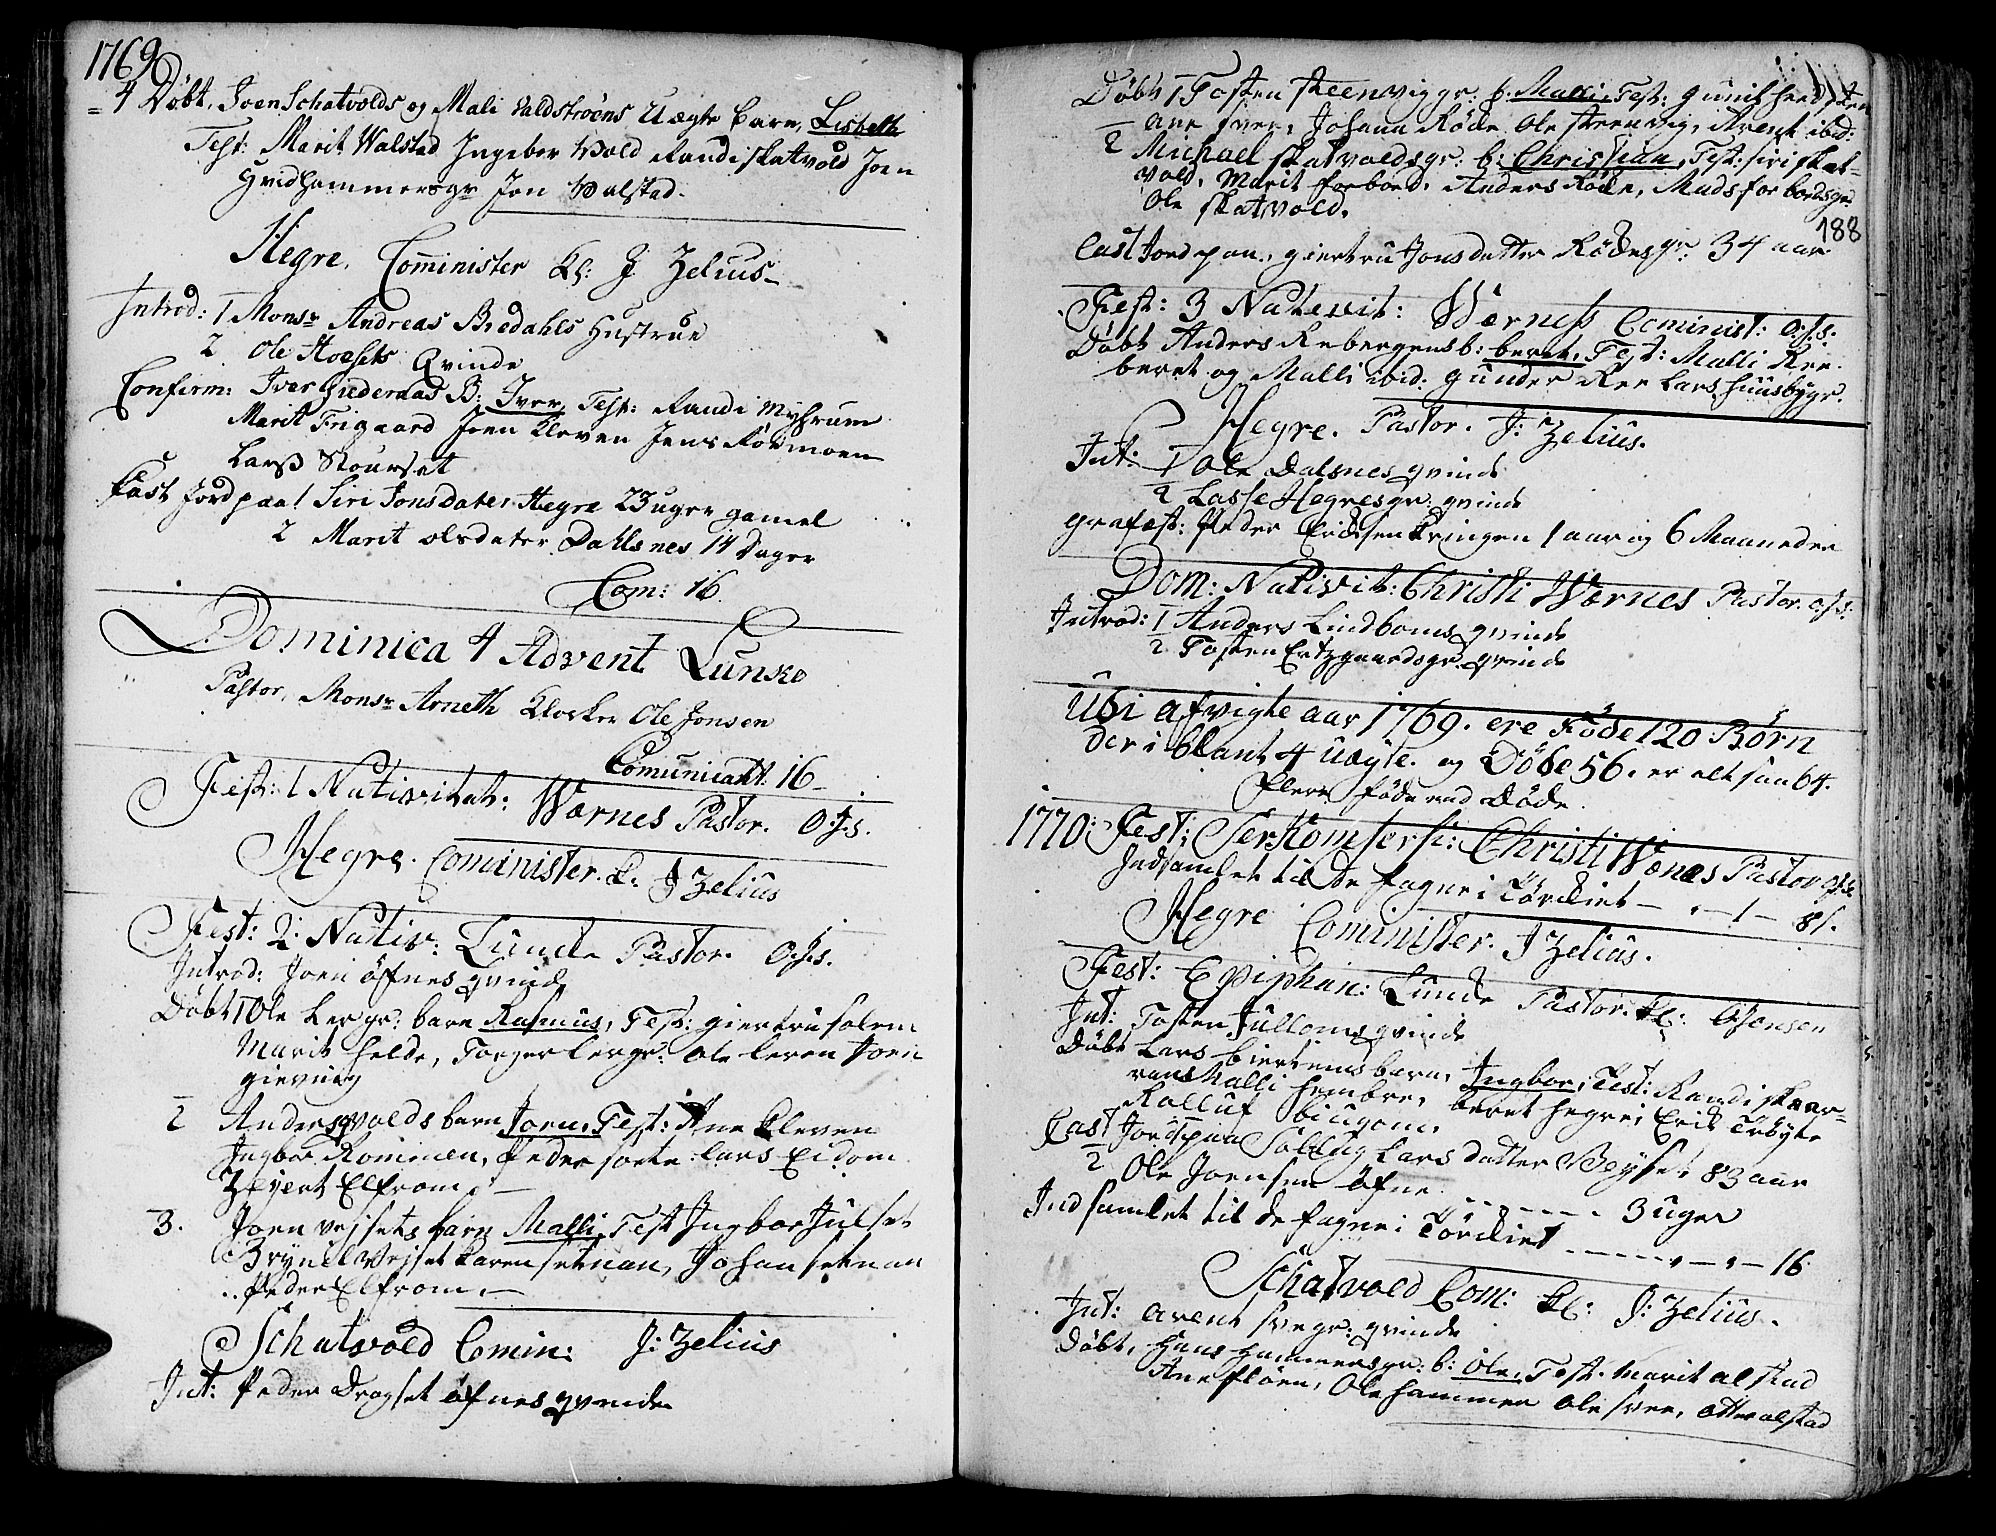 1769
4 Døbt, Joen Schatvolds og Mali Valdstrøens Uægte barn, Lisbeth
Test: Marit Walstad Ingebor Wold Randi skatvold Joen
Hvidhammersgr Jon Walstad.
Hegre, Cominister Kl: J Zelius
Introd: 1 Monsr Andreas Bredahls Hustrue
2 Ole Hoesets Qvinde
Confirm: Iver Giedernaas B: Iver, Test: Randi Myhrum
Marit Trigaard Joen Kleven Jens Rømoen
Larss Stourset
Kast Jord paa 1 Siri Jonsdater Hegre 23 uger gamel
2 Marit olsdater Dahlsnes 14 Dager
Com: 16.
Dominica 4 Advent Lunke
Pastor, Monsr Arneth Klocker Ole Jonsen
Comunicantt: 16
Fest: 1 Nativitat: Wærnes Pastor. O.J.s.
Hegre. Cominister. K: J Zelius
Fest: 2: Nativ: Lunde Pastor. O.J.s.
Introd: Joen øfnes qvinde
Døbt 1 Ole Lergr: barn Rasmus, Test: giertru solem
Marit helde, Torger Lergr: Ole leren Joen
gievning
2 Anders volds barn Joen, Test: Ane Kleven
Ingbor Rommen, Peder sorte Lars Eidom
Zejert Elfrom
3. Joen vejsets barn Malli, Test Ingbor Julset
Brynel Vejset Karen setnan, Johan setnan
Peder Elfrom.
Schatvold Comin: J: Zelius
Int: Peder Dragset øfnes qvinde
Døbt 1 Tosten steenvig gr: b: Malli, Test: Gunild
Ane svee, Johann Røde Ole steenvig, Arent ibid:
2 Michael skatvoldsgr: b: Christian, Test: siri skat-
vold, Marit forbord, Anders Røde, Mads forbordsgr
Ole skatvold.
188
Cast Jord paa, giertru Jonsdatter Rødesgr. 34 aar
Fest: 3 Nativit: Værness Cominist: O.J.s.
Døbt Anders Rebergens b: beret, Test: Malli Ree.
beret og Malli ibid: gunder Ree Lars huusbygr.
Hegre. Pastor. J: Zelius.
Int: 1 Ole Dalsnes qvinde
2 Lasse Hegresgr. qvinde
grafæst: Peder Eriksen Kringen 1 aar og 6 Maaneder
Dom: Nativit: Christi Wærnes Pastor. O.J.s.
Introd: 1 Anders Lindboms qvinde
2 Tosten Ertzgaardsgr. qvinde
Udi afvigte aar 1769. ere Føde 120 Børn
der i blant 4 uægte. og Døde 56. er alt saa 64.
flere føde end Døde.
1770: Fest: Circomsersi: Christi Wænes Pastor O.J.s.
Indsamlet til de fagne i Tørckiet — " — 1 — 8 s.
Hegre Cominister. J Zelius.
Fest: Epiphan: Lunde Pastor. Kl: OJonsen
Int: Tosten Julloms qvinde
Døbt Lars biertems barn, Ingbor, Test: Randi skaar-
ran Malli hembre, beret hegre, Erik Trøyte
Rolluf biugom.
Cast Jord paa Sollug Larsdatter Vejset 83 aar
2 Ole Joensen øfne ------- 3 uger
Indsamlet til de fagne i Tørckiet ------ " — " — 16
Schatvold Com: Kl: J: Zelius.
Int: arent svegr: qvinde
Døbt, Hans Hammersgr: b: Ole, Test. Marit alstad
Ane fløen, Ole hammer Ole svee, otter alstad